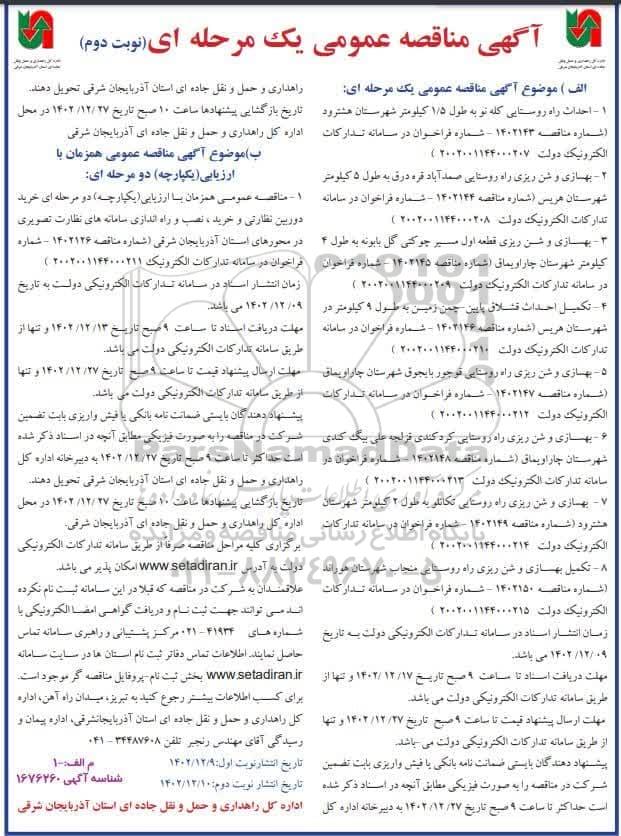 آگهی مناقصه عمومی یک مرحله ای(نوبت دوم)
اداره کل راهداری و حمل و نقل
جاده ای استان آذربایجان شرقی
الف ) موضوع آگهی مناقصه عمومی یک مرحله ای:
۱ - احداث راه روستایی کله نو به طول ۱/۵ کیلومتر شهرستان هشترود
(شماره مناقصه ۱۴۰۲۱۴۳ - شماره فراخوان در سامانه تدارکات
الکترونیک دولت ۲۰۰۲۰۰۱۱۴۴۰۰۰۲۰۷ )
۲ - بهسازی و شن ریزی راه روستایی صمدآباد قره درق به طول ۵ کیلومتر
شهرستان هریس (شماره مناقصه ۱۴۰۲۱۴۴ - شماره فراخوان در سامانه
تدارکات الکترونیک دولت ۲۰۰۲۰۰۱۱۴۴۰۰۰۲۰۸ )
۳ - بهسازی و شن ریزی قطعه اول مسیر چوکتی گل بابونه به طول ۴
کیلومتر شهرستان چاراویماق (شماره مناقصه ۱۴۰۲۱۴۵ - شماره فراخوان
در سامانه تدارکات الکترونیک دولت ۲۰۰۲۰۰۱۱۴۴۰۰۰۲۰۹ )
۴ - تکمیل احداث قشلاق پایین -چمن زمین به طول ۹ کیلومتر در
شهرستان هریس (شماره مناقصه ۱۴۰۲۱۴۶ - شماره فراخوان در سامانه
تدارکات الکترونیک دولت ۲۰۰۲۰۰۱۱۴۴۰۰۰۲۱۰ )
۵ - بهسازی و شن ریزی راه روستایی قوجور بایجوق شهرستان چاراویماق
(شماره مناقصه ۱۴۰۲۱۴۷ - شماره فراخوان در سامانه تدارکات
الکترونیک دولت ۲۰۰۲۰۰۱۱۴۴۰۰۰۲۱۲ )
۶ - بهسازی و شن ریزی راه روستایی کردکندی قزلجه علی بیگ کندی
شهرستان چاراویماق (شماره مناقصه ۱۴۰۲۱۴۸ - شماره فراخوان در
سامانه تدارکات الکترونیک دولت ۲۰۰۲۰۰۱۱۴۴۰۰۰۲۱۳ )
۷ - بهسازی و شن ریزی راه روستایی تکانلو به طول ۲ کیلومتر شهرستان
هشترود (شماره مناقصه ۱۴۰۲۱۴۹ - شماره فراخوان در سامانه تدارکات
الکترونیک دولت ۲۰۰۲۰۰۱۱۴۴۰۰۰۲۱۴ )
۸ - تکمیل بهسازی و شن ریزی راه روستایی منجاب شهرستان هوراند
(شماره مناقصه ۱۴۰۲۱۵۰ - شماره فراخوان در سامانه تدارکات
الکترونیک دولت ۲۰۰۲۰۰۱۱۴۴۰۰۰۲۱۵ )
زمان انتشار اسناد در سامانه تدارکات الکترونیکی دولت به تاریخ
۱۴۰۲/۱۲/۰۹ می باشد.
مهلت دریافت اسناد تا ساعت ۹ صبح تاریخ ۱۴۰۲/۱۲/۱۷ و تنها از
طریق سامانه تدارکات الکترونیکی دولت می باشد.
مهلت ارسال پیشنهاد قیمت تا ساعت ۹ صبح تاریخ ۱۴۰۲/۱۲/۲۷ و تنها
از طریق سامانه تدارکات الکترونیکی دولت می -باشد.
پیشنهاد دهندگان بایستی ضمانت نامه بانکی یا فیش واریزی بابت تضمین
شرکت در مناقصه را به صورت فیزیکی مطابق آنچه در اسناد ذکر شده
است حداکثر تا ساعت ۹ صبح تاریخ ۱۴۰۲/۱۲/۲۷ به دبیرخانه اداره کل
راهداری و حمل و نقل جاده ای استان آذربایجان شرقی تحویل دهند.
تاریخ بازگشایی پیشنهادها ساعت ۱۰ صبح تاریخ ۱۴۰۲/۱۲/۲۷ در محل
اداره کل راهداری و حمل و نقل جاده ای استان آذربایجان شرقی
ب)موضوع آگهی مناقصه عمومی همزمان با
ارزیابی(یکپارچه) دو مرحله ای:
۱ - مناقصه عمومی همزمان با ارزیابی(یکپارچه) دو مرحله ای خرید
دوربین نظارتی و خرید ، نصب و راه اندازی سامانه های نظارت تصویری
در محورهای استان آذربایجان شرقی (شماره مناقصه ۱۴۰۲۱۲۶ - شماره
فراخوان در سامانه تدارکات الکترونیک ۲۰۰۲۰۰۱۱۴۴۰۰۰۲۱۱ )
زمان انتشار اسناد در سامانه تدارکات الکترونیکی دولت به تاریخ
۱۴۰۲/۱۲/۰۹ می باشد.
مهلت دریافت اسناد تا ساعت ۹ صبح تاریخ ۱۴۰۲/۱۲/۱۳ و تنها از
طریق سامانه تدارکات الکترونیکی دولت می باشد.
مهلت ارسال پیشنهاد قیمت تا ساعت ۹ صبح تاریخ ۱۴۰۲/۱۲/۲۷ و تنها
از طریق سامانه تدارکات الکترونیکی دولت می باشد.
پیشنهاد دهندگان بایستی ضمانت نامه بانکی یا فیش واریزی بابت تضمین
شرکت در مناقصه را به صورت فیزیکی مطابق آنچه در اسناد ذکر شده
است حداکثر تا ساعت ۹ صبح تاریخ ۱۴۰۲/۱۲/۲۷ به دبیرخانه اداره کل
راهداری و حمل و نقل جاده ای استان آذربایجان شرقی تحویل دهند.
تاریخ بازگشایی پیشنهادها ساعت ۱۰ صبح تاریخ ۱۴۰۲/۱۲/۲۷ در محل
اداره کل راهداری و حمل و نقل جاده ای استان آذربایجان شرقی.
برگزاری کلیه مراحل مناقصه صرفاً از طریق سامانه تدارکات الکترونیکی
دولت به آدرس www.setadiran.ir امکان پذیر می باشد.
علاقمندان به شرکت در مناقصه که قبلا در این سامانه ثبت نام نکرده
اند می توانند جهت ثبت نام و دریافت گواهی امضا الکترونیکی با
شماره های ۴۱۹۳۴ - ۰۲۱ مرکز پشتیبانی و راهبری سامانه تماس
حاصل نمایند. اطلاعات تماس دفاتر ثبت نام استان ها در سایت سامانه
www.setadiran.ir بخش ثبت نام-پروفایل مناقصه گر موجود است.
برای کسب اطلاعات بیشتر رجوع کنید به تبریز، میدان راه آهن، اداره
کل راهداری و حمل و نقل جاده ای استان آذربایجانشرقی، اداره پیمان و
رسیدگی آقای مهندس رنجبر تلفن ۳۴۴۸۷۶۰۸ - ۰۴۱
تاریخ انتشارنوبت اول:۱۴۰۲/۱۲/۹
م الف:-۱۰
تاریخ انتشار نوبت دوم:۱۴۰۲/۱۲/۱۰
شناسه آگهی ۱۶۷۶۲۶۰
اداره کل راهداری و حمل و نقل جاده ای استان آذربایجان شرقی
ParsNamadData
پایگاه اطلاع رسانی مناقصه و مزایده
۰۲۱-۸۸۳۴۹۶۷۰-۵